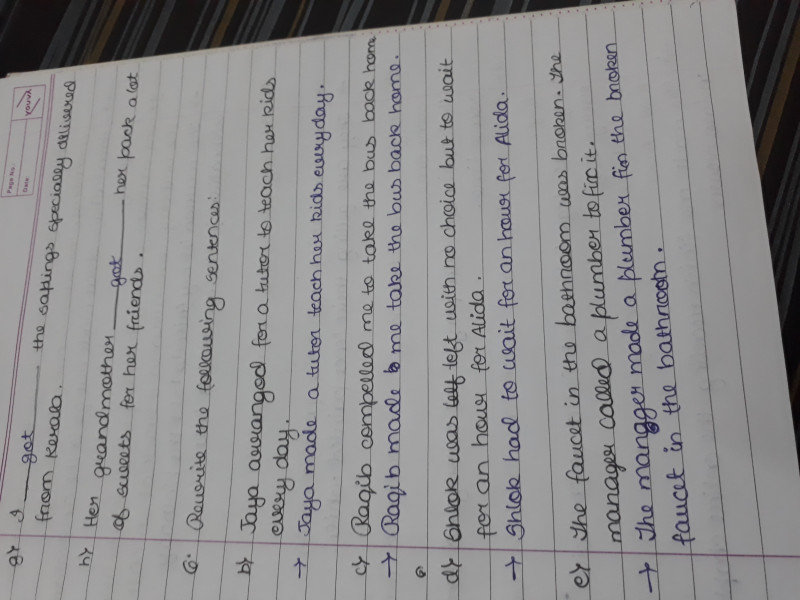 Page No.
Date
YOUVA
g) I got the saplings specially delivered
from Kerala.
h) Her grandmother got her pack a lot
of sweets for her friends.
6. Rewrite the following sentences:
b) Jaya arranged for a tutor to teach her kids
every day.
→ Jaya made a tutor teach her kids everyday.
c) Raqib compelled me to take the bus back home
→ Raqib made me take the bus back home.
d) Shlok was left with no choice but to wait
for an hour for Alida.
→ Shlok had to wait for an hour for Alida.
e) The faucet in the bathroom was broken. The
manager called a plumber to fix it.
→ The manager made a plumber fix the broken
faucet in the bathroom.